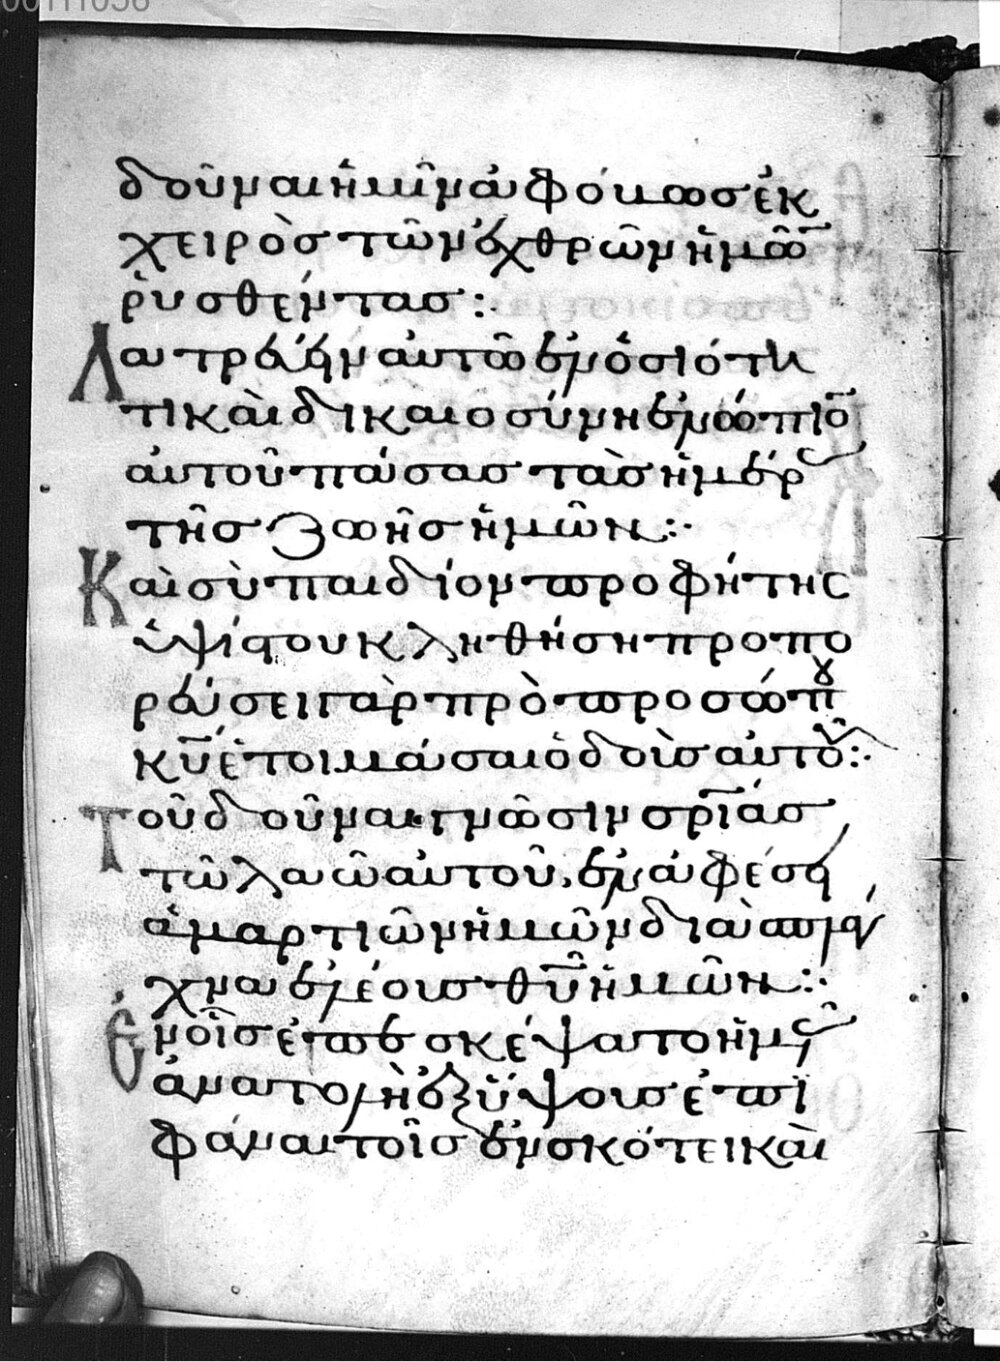 00111058
δοῦναι ἡμῖν ἀφόβωσ ἐκ
χειρὸσ τῶν ἐχθρῶν ἡμῶ
ῥυσθέντασ :
Λατρεύειν αὐτῶ ἐν ὁσιότη
τι καὶ δικαιοσύνη ἐνώπιο
αὐτοῦ πάσασ τὰσ ἡμέρ
τῆσ ζωῆσ ἡμῶν :·
Καὶ σὺ παιδίον προφήτης
ὑψίστου κληθήση προπο
ρεύσει γὰρ πρὸ προσώπου
κ̅υ̅ ἑτοιμάσαι ὁδοὺσ αὐτοῦ :·
Τοῦ δοῦναι γνῶσιν σ̅ρ̅ι̅άσ
τῶ λαῶ αὐτοῦ, ἐν ἀφέσει
ἁμαρτιῶν ἡμῶν διὰ σπλάγ
χνα ἐλέουσ θ̅υ̅ ἡμῶν :·
Ἐν οἷσ ἐπεσκέψατο ἡμᾶς
ἀνατολὴ ἐξ ὕψουσ ἐπι
φάναι τοῖσ ἐν σκότει καὶ